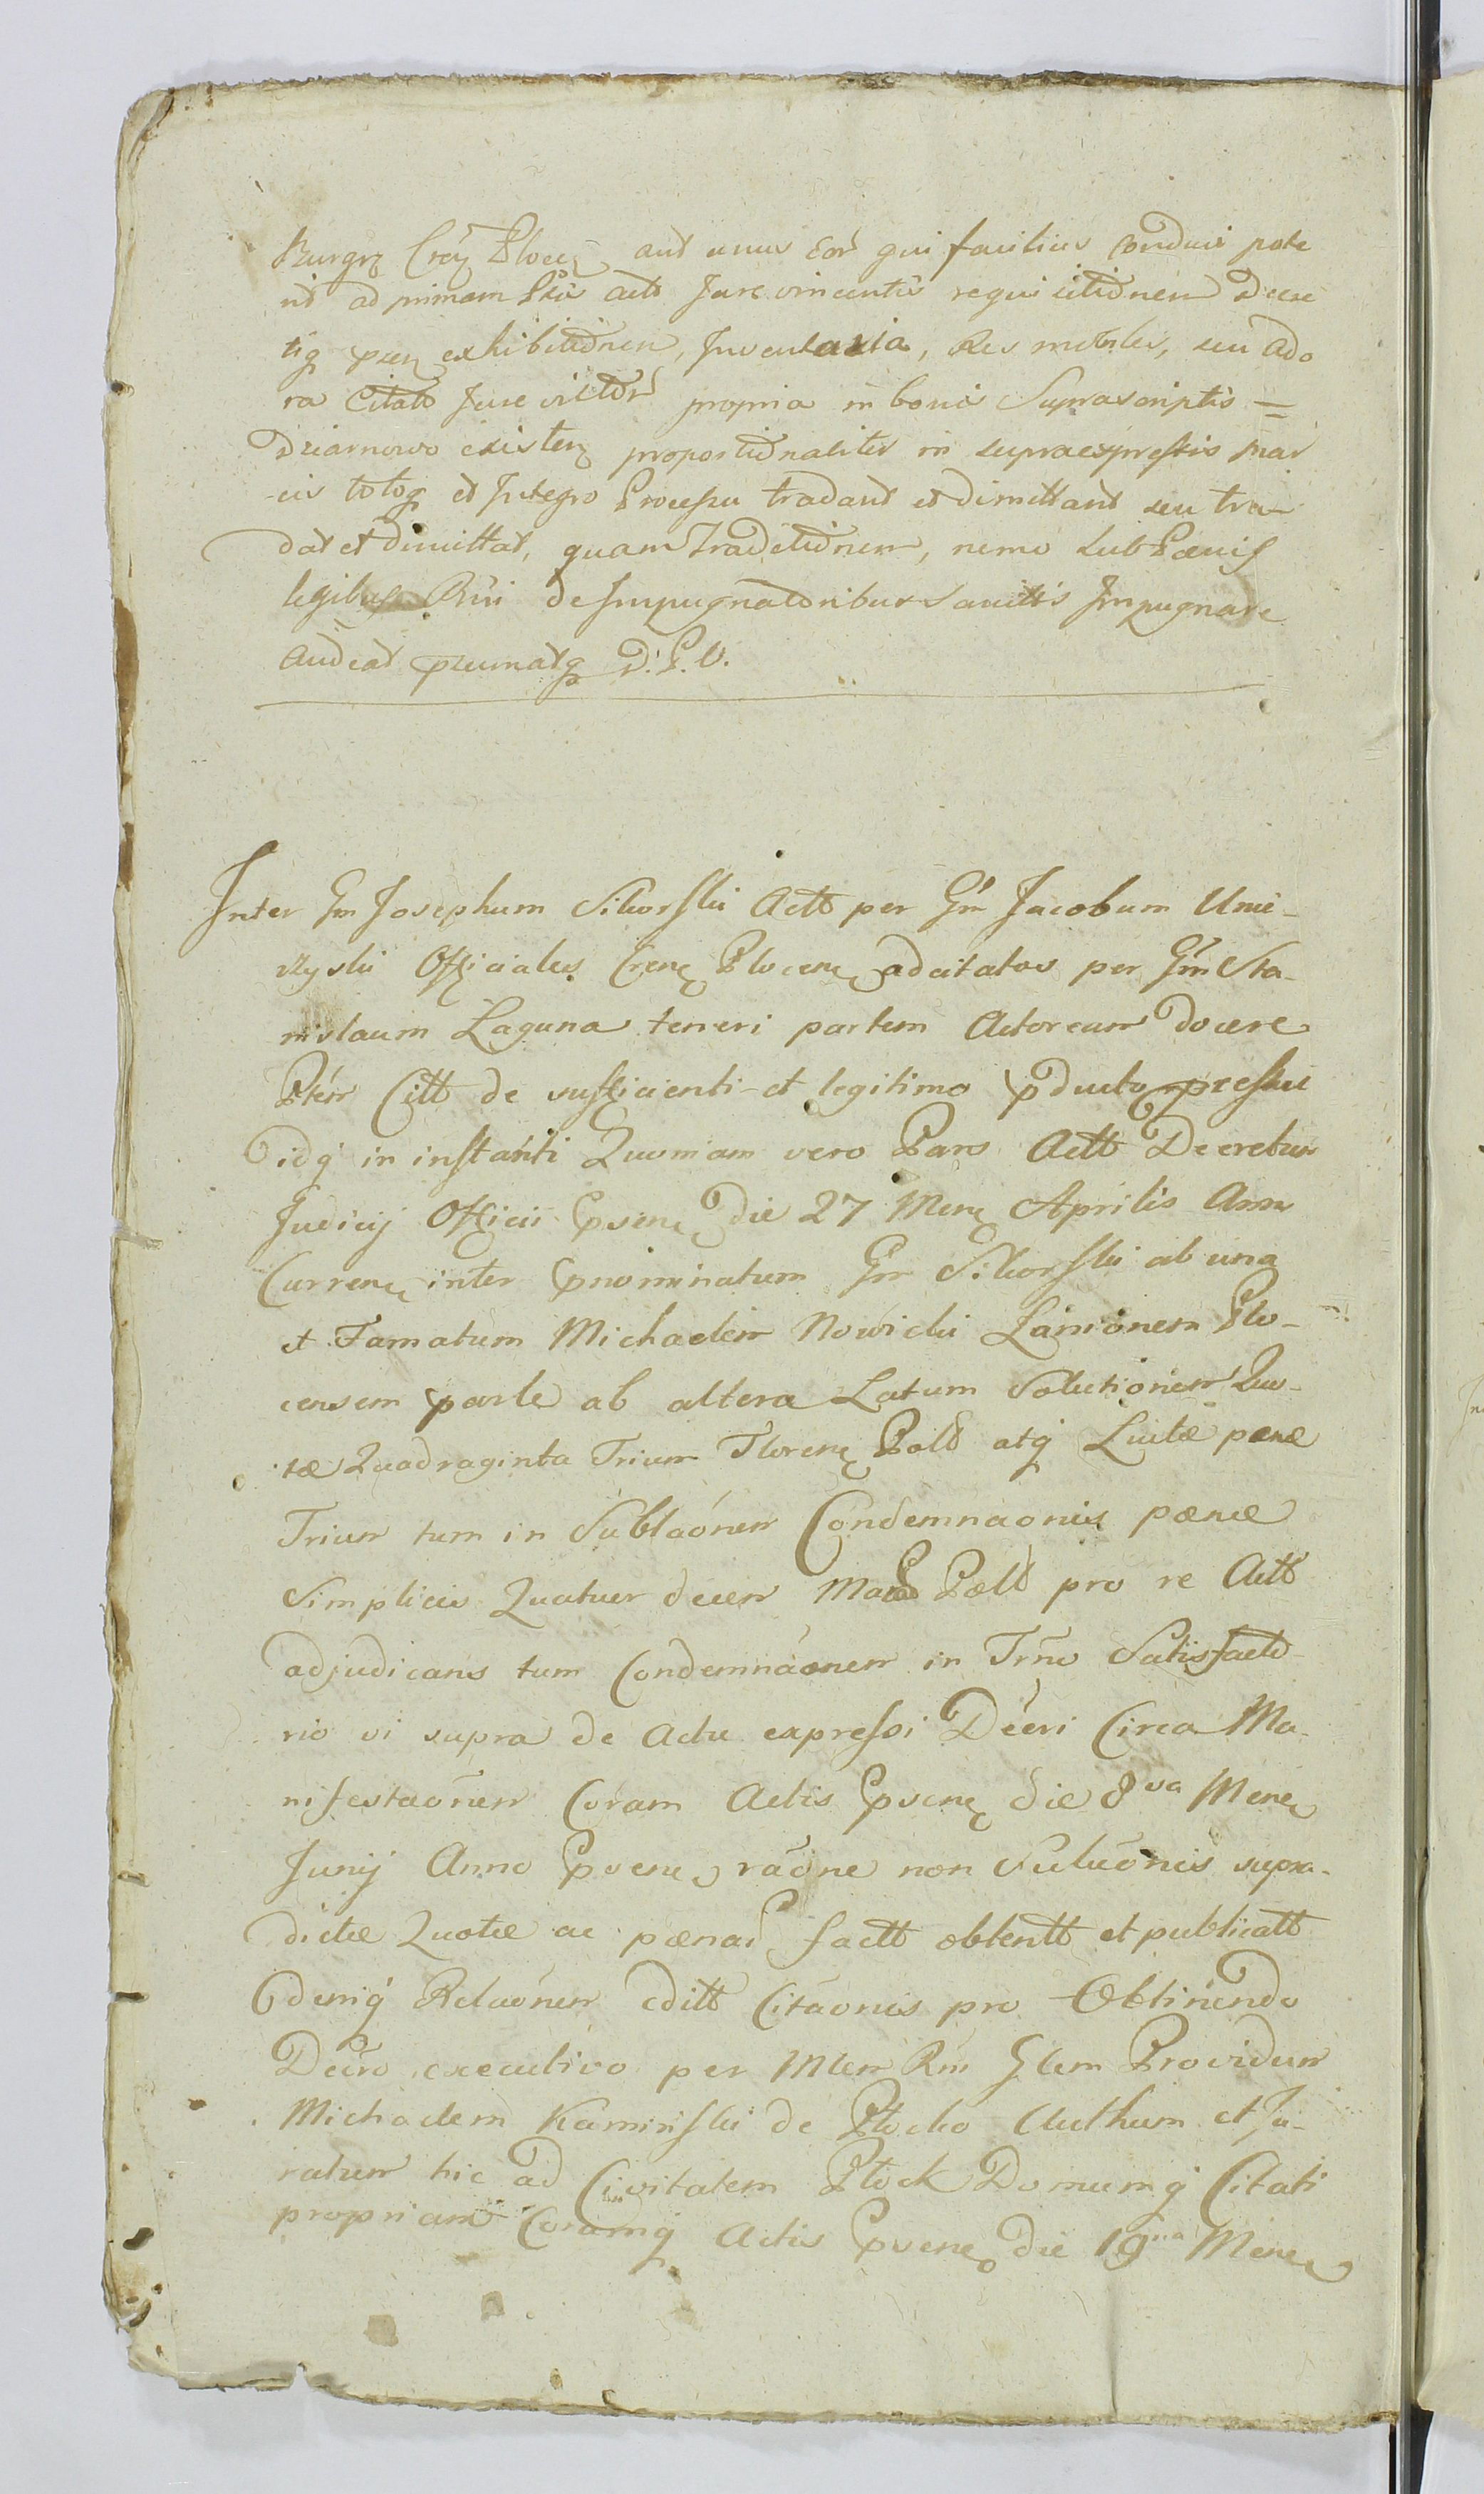 aut unus Eor qui facilius conduci pote
rit ad primam Actt Jure vincentis requisitiõnem Decre
tiq exhibitiõnem, Inventaria, Res mobiles, seu
ra Citato Jure victor propria in bonis Suprascriptis =
Dziarnowo existen proportiõnaliter in supraexpressis
totoq et Integro Processu tradant et dimittant seu tra-
dat et dimittat, quam Traditiõnem, nemo sub Pænis
legibus Rni de Impugnatoribus Sancitis Impugnare
audeat D. P. V.
Inter Gm Josephum Sikorski Actt per Gm Jacobum Umi-
Officiales Crens Plocens adcitatos per Gm Sta-
nislaum Laguna teneri partem Actoream docere
Citt de sufficienti et legitimo pducto pcessu
idq in instanti Quoniam vero Pars Actt Decretum
Judicij Officii Psens die 27 Mens Aprilis Anni
Currens inter pnominatum Gm Sikorski ab una
et Famatum Michaelem Nowicki Lanionem Plo-
censem parte ab altera Latum Solutionem Quo-
tæ Quadraginta Trium Florens Polo atq Luitæ pænæ
Trium tum in Sublaónem Condemnaonis pænæ
Simplicis Quatuor decem Polo pro re Actt
adjudicans tum Condemnáonem in Trno Satisfacto-
rio vi supra de Actu expressi Decri Circa Ma-
nifestaõnem Coram Actis Psens die 8va Mens
Junij Anno Psens raõne non Soluõnis supra-
dictæ Quotæ ac pænar factt obtentt et publicatt
deniq Relaónem editt Citaõnis pro Obtinendo
Decro executivo per Mlem Rni Glem Providum
Michaelem Kaminski de Plocko Authum et Ju-
ratum hic ad Civitatem Plock Domumq Citati
propriam Coramq Actis Psens die 19na Mens